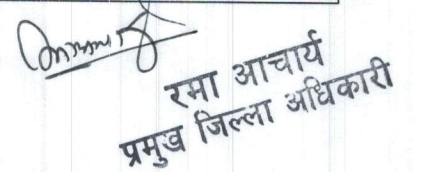 रमा आचार्य
प्रमुख जिल्ला अधिकारी